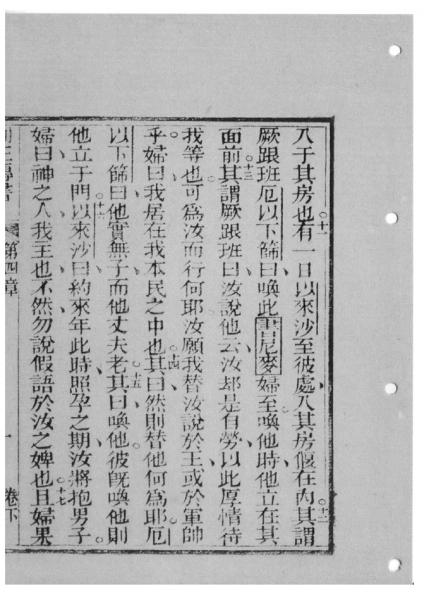 入于其房也十一有一日以來沙至彼處入其房偃在內十二其謂
厥跟班厄以下篩曰喚此書尼麥婦至喚他時他立在其
面前十三其謂厥跟班曰汝說他云汝都是有勞以此厚情待
我等也可爲汝而行何耶汝願我替汝說於王或於軍帥
乎婦曰我居在我本民之中也十四其曰然則替他何爲耶厄
以下篩曰他實無子而他丈夫老十五其曰喚他彼旣喚他則
他立于門十六以來沙曰約來年此時照孕之期汝將抱男子
婦曰神之人我主也不然勿說假語於汝之婢也十七且婦果
第四章 一 卷下